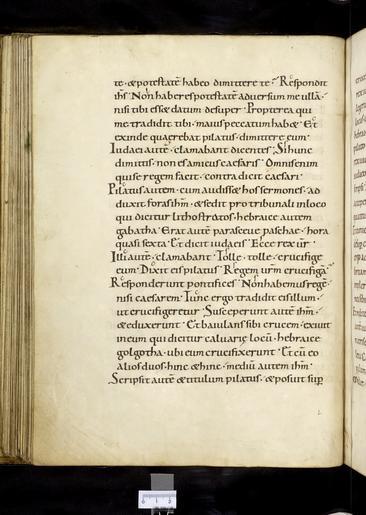 te · & potestatē habeo dimittere te · Respondit
ihs Non haberes potestatē adversum me ullā ·
nisi tibi esset datum desuper Propterea qui
me tradidit tibi · maius peccatum habet · Et
exinde quaerebat pilatus · dimittere eum
Iudaei autē · clamabant dicentes Si hunc
dimittis · non es amicus caesaris Omnis enim
qui se regem facit · contradicit caesari
Pilatus autem · cum audisset hos sermones · ad
duxit foras ihm̄ · & sedit pro tribunali in loco
qui dicitur lithostrotos · hebraice autem
gabatha Erat autē parasceue paschae · hora
quasi sexta Et dicit iudaeis Ecce rex ur̄
Illi autē · clamabant Tolle · tolle · crucifige
eum Dixit eis pilatus Regem urm̄ crucifigā
Responderunt pontifices Non habemus regē ·
nisi caesarem Tunc ergo tradidit eis illum ·
ut crucifigeretur Susceperunt autē ihm̄ ·
& eduxerunt · Et baiulans sibi crucem · exiuit
in eum qui dicitur caluariae locū · hebraice
golgotha · ubi eum crucifixerunt Et cū eo
alios duos · hinc & hinc · mediū autem ihm̄ ·
Scripsit autē & titulum pilatus · & posuit sup